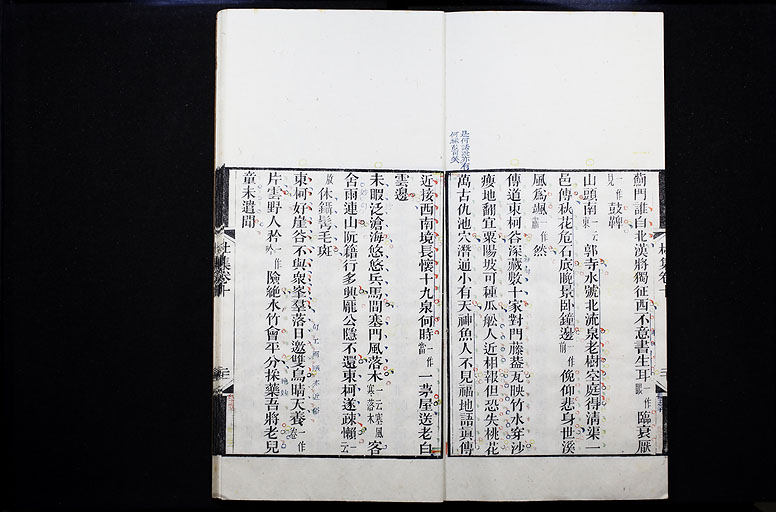 薊門誰自北漢將獨征西不意書生耳一作眼臨衰厭
見一作鼓鞞
山頭南一云東郭寺水號北流泉老樹空庭得淸渠一
邑傳秋花危石底晚景臥鐘邊一作前俛仰悲身世溪
風爲颯一作然
傳道東柯谷深藏數十家對門藤蓋瓦映竹水穿沙
瘦地翻宜粟陽坡可種瓜船人近相報但恐失桃花
萬古仇池穴潛通小有天神魚人不見福地語眞傳
近接西南境長懷十九泉何時一作當一茅屋送老白
雲邊
未暇泛滄海悠悠兵馬間塞門風落木一云寒風寒落木客
舍雨連山阮籍行多興龐公隱不還東柯遂疎懶一云
放休鑷鬢毛斑
東柯好崖谷不與衆峯羣落日邀雙鳥晴天養一作卷
片雲野人矜一作吟險絶水竹會平分採藥吾將老兒
童未遣聞
杜集卷十